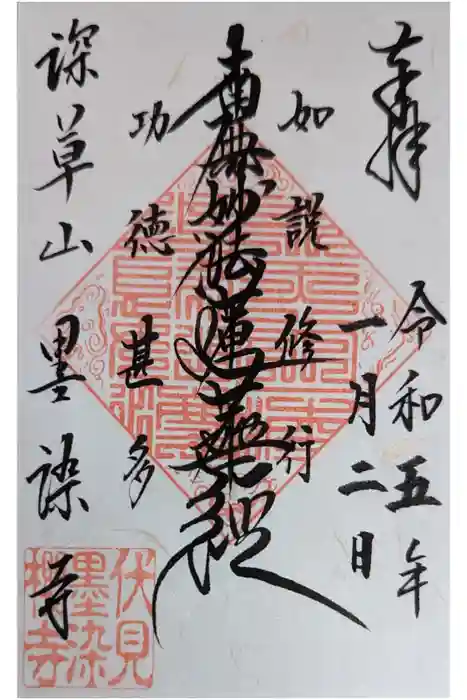 奉拝
令和五年
一月二日
如説修行
南無妙法蓮華経
功徳甚多
深草山墨染寺
伏見
墨染
桜寺